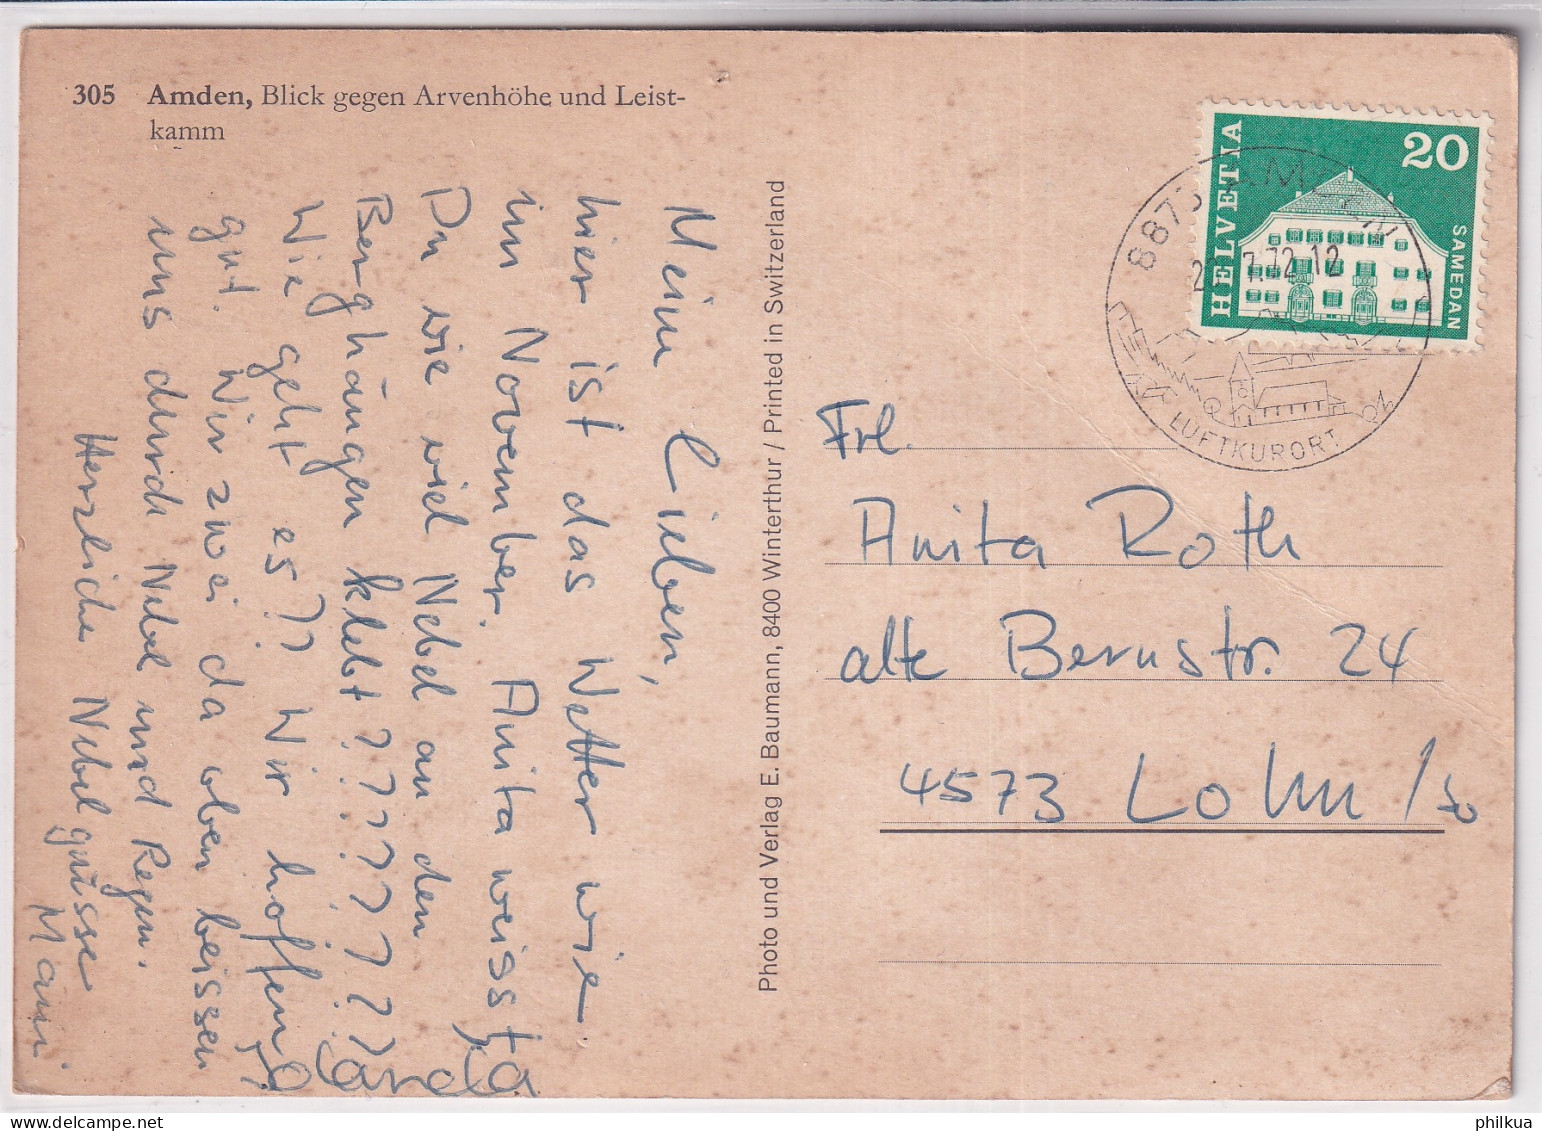 305 Amden, Blick gegen Arvenhöhe und Leist-
kamm
Meine Lieben,
hier ist das Wetter wie
im November. Anita weisst
Du wie viel Nebel an den
Berghängen klebt ??????????
Wie geht es?? Wir hoffen
gut. Wir zwei da oben beissen
uns durch Nebel und Regen.
Herzliche Nebelgrüsse
Mami
Photo und Verlag E. Baumann, 8400 Winterthur / Printed in Switzerland
HELVETIA
20
SAMEDAN
8873 AMDEN
7.72 12
LUFTKURORT
Frl.
Anita Roth
alte Bernstr. 24
4573 Lohn / So
philkua